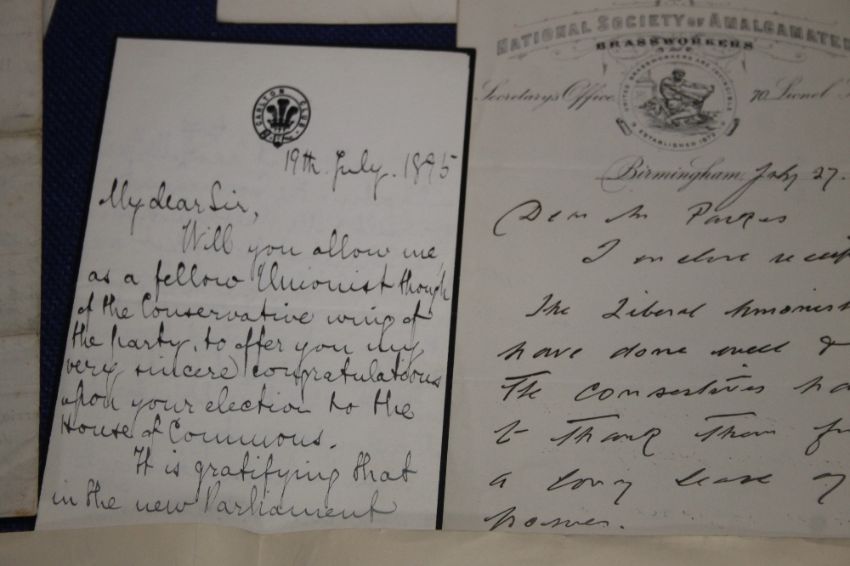 CARLTON CLUB
19th. July. 1895
My dear Sir,
Will you allow me,
as a fellow Unionist though
of the Conservative wing of
the party, to offer you my
very sincere congratulations
upon your election to the
House of Commons.
It is gratifying that
in the new Parliament
NATIONAL SOCIETY OF AMALGAMATED
BRASSWORKERS
Secretary's Office
70, Lionel
ESTABLISHED 1872
Birmingham, July 27.
Dear Mr Parkes
I enclose
The Liberal Unionist
have done well &
The
to thank them for
a long lease of